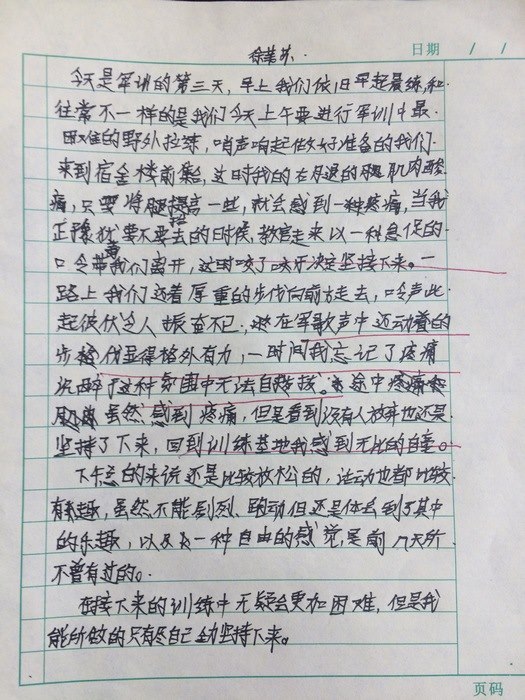 日期 / /
今天是军训的第三天,早上我们依旧早起晨练,和
往常不一样的是我们今天上午要进行军训中最
困难的野外拉练,哨声响起做好准备的我们
来到宿舍楼前集合,这时我的右腿的肌肉酸
痛,只要将腿提高一些,就会感到一种疼痛,当我
正犹豫要不要去的时候,教官走来以一种急促的
口令带着我们离开,这时咬了咬牙决定坚持下来。一
路上我们迈着厚重的步伐向前方走去,口令声此
起彼伏令人振奋不已,在军歌声中迈动着的
步伐显得格外有力,一时间我忘记了疼痛
沉醉于这种氛围中无法自拔。途中
虽然感到疼痛,但是看到没有人放弃也还是
坚持了下来,回到训练基地我感到无比的自豪。
下午总的来说还是比较放松的,活动也都比较
有趣,虽然不能剧烈跑动但还是体会到了其中
的乐趣,以及一种自由的感觉,是前几天所
不曾有过的。
在接下来的训练中无疑会更加困难,但是我
能所做的只有尽自己全力坚持下来。
页码